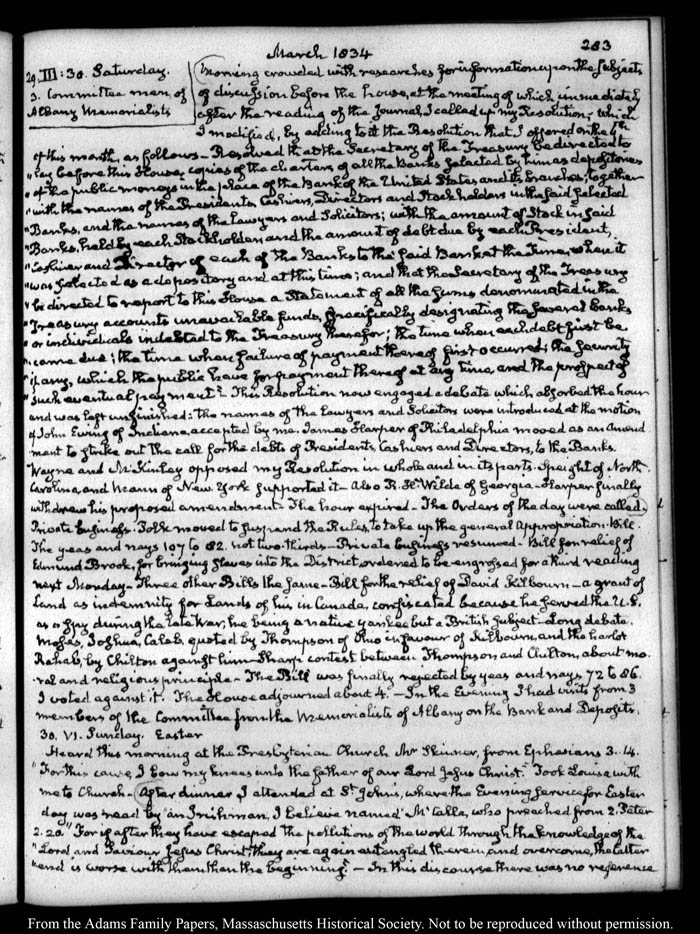 March 1834
283
29. III: 30. Saturday.
3. Committee men of
Albany Memorialists
Morning crowded with researches for information upon the subjects
of discussion before the house, at the meeting of which immediately
after the reading of the Journal, I called up my Resolution; which
I modified, by adding to it the Resolution that I offered on the
of this month, as follows — Resolved that the Secretary of the Treasury be directed to
"lay before this House, copies of the charters of all the Banks selected by him as depositories
"of the public moneys in the place of the Bank of the United States and its branches; together
"with the names of the Presidents, Cashiers, Directors and Stockholders in the said selected
"Banks, and the names of the Lawyers and Solicitors; with the amount of Stock in said
"Banks, held by each Stockholder, and the amount of debt due by each President,
"Cashier and Director of each of the Banks to the said Bank at the time, when it
"was selected as a depository and at this time; and that the Secretary of the Treasury
"be directed to report to this House a Statement of all the sums denominated in the
"Treasury accounts unavailable funds, specifically designating the several banks
"or individuals indebted to the Treasury therefor; the time when each debt first be-
"came due; the time when failure of payment thereof first occurred; the security
"if any, which the public have for payment thereof at any time, and the prospect of
"such eventual payment". This Resolution now engaged a debate which absorbed the hour
and was left unfinished: the names of the Lawyers and Solicitors were introduced at the motion
of John Ewing of Indiana, accepted by me. James Harper of Philadelphia moved as an Amend-
ment to strike out the call for the debts of Presidents, Cashiers and Directors, to the Banks.
Wayne and McKinley opposed my Resolution in whole and in its parts. Speight of North-
Carolina, and Mann of New York supported it — Also R. H. Wilde of Georgia — Harper finally
withdrew his proposed amendment — The hour expired — The Orders of the day were called.
Private business. Polk moved to suspend the Rules, to take up the general Appropriation Bill.
The yeas and nays 107 to 82. not two-thirds — Private business resumed — Bill for relief of
Edmund Brook, for bringing slaves into the District, ordered to be engrossed for a third reading
next Monday — Three other Bills the same — Bill for the relief of David Kilbourn — a grant of
Land as indemnity for Lands of his in Canada, confiscated because he served the U.S.
as a spy during the late War, he being a native yankee but a British Subject — Long debate.
Moses, Joshua, Caleb, quoted by Thompson of Ohio in favour of Kilbourn, and the harlot
Rahab, by Chilton against him — Sharp contest between Thompson and Chilton, about mo-
ral and religious principle — The Bill was finally rejected by yeas and nays 72 to 86.
I voted against it. The House adjourned about 4. — In the Evening I had visits from 3
members of the Committee from the Memorialists of Albany on the Bank and Deposits.
30. VI. Sunday. Easter
Heard this morning at the Presbyterian Church Mr Skinner, from Ephesians 3. 14.
"For this cause, I bow my knees unto the father of our Lord Jesus Christ." Took Louisa with
me to Church — After dinner, I attended at St John's, where the Evening service for Easter
day was read by an Irishman, I believe named McCalla, who preached from 2. Peter
2. 20. "For if after they have escaped the pollutions of the world through the knowledge of the
"Lord and Saviour Jesus Christ, they are again entangled therein, and overcome, the latter
"end is worse with them than the beginning". — In this discourse there was no reference
From the Adams Family Papers, Massachusetts Historical Society. Not to be reproduced without permission.